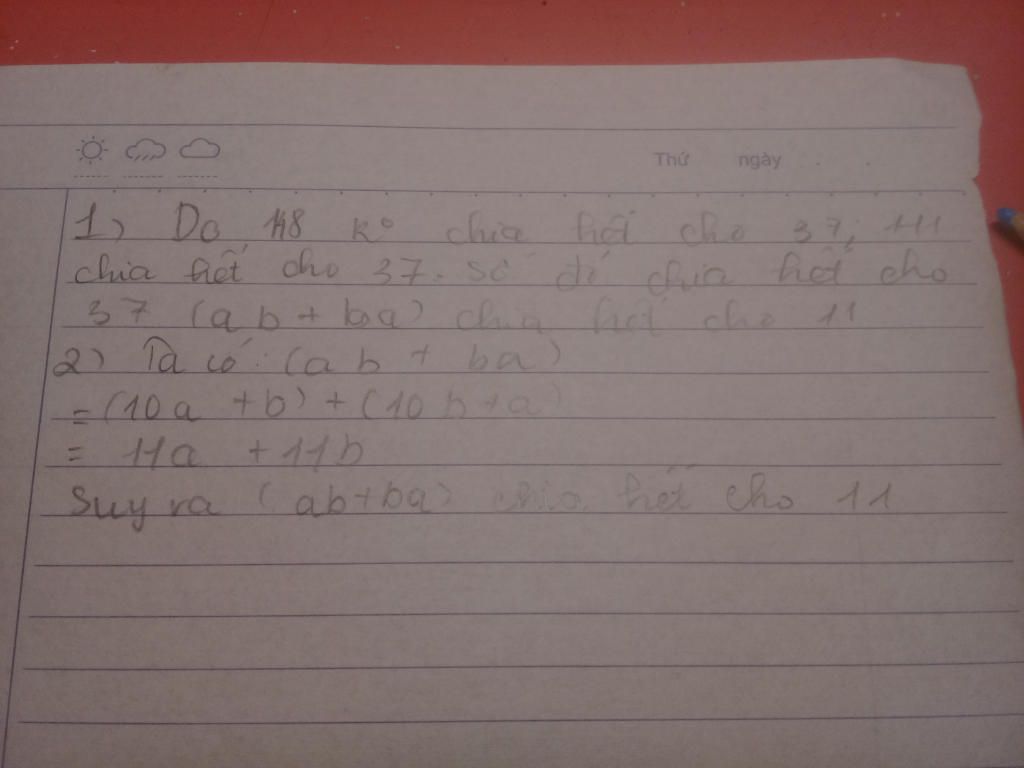 Thứ ngày
1) Do 148 k° chia hết cho 37; 111
chia hết cho 37. Số đó chia hết cho
37 (ab + ba) chia hết cho 11
2) Ta có: (ab + ba)
= (10a + b) + (10b + a)
= 11a + 11b
Suy ra (ab + ba) chia hết cho 11